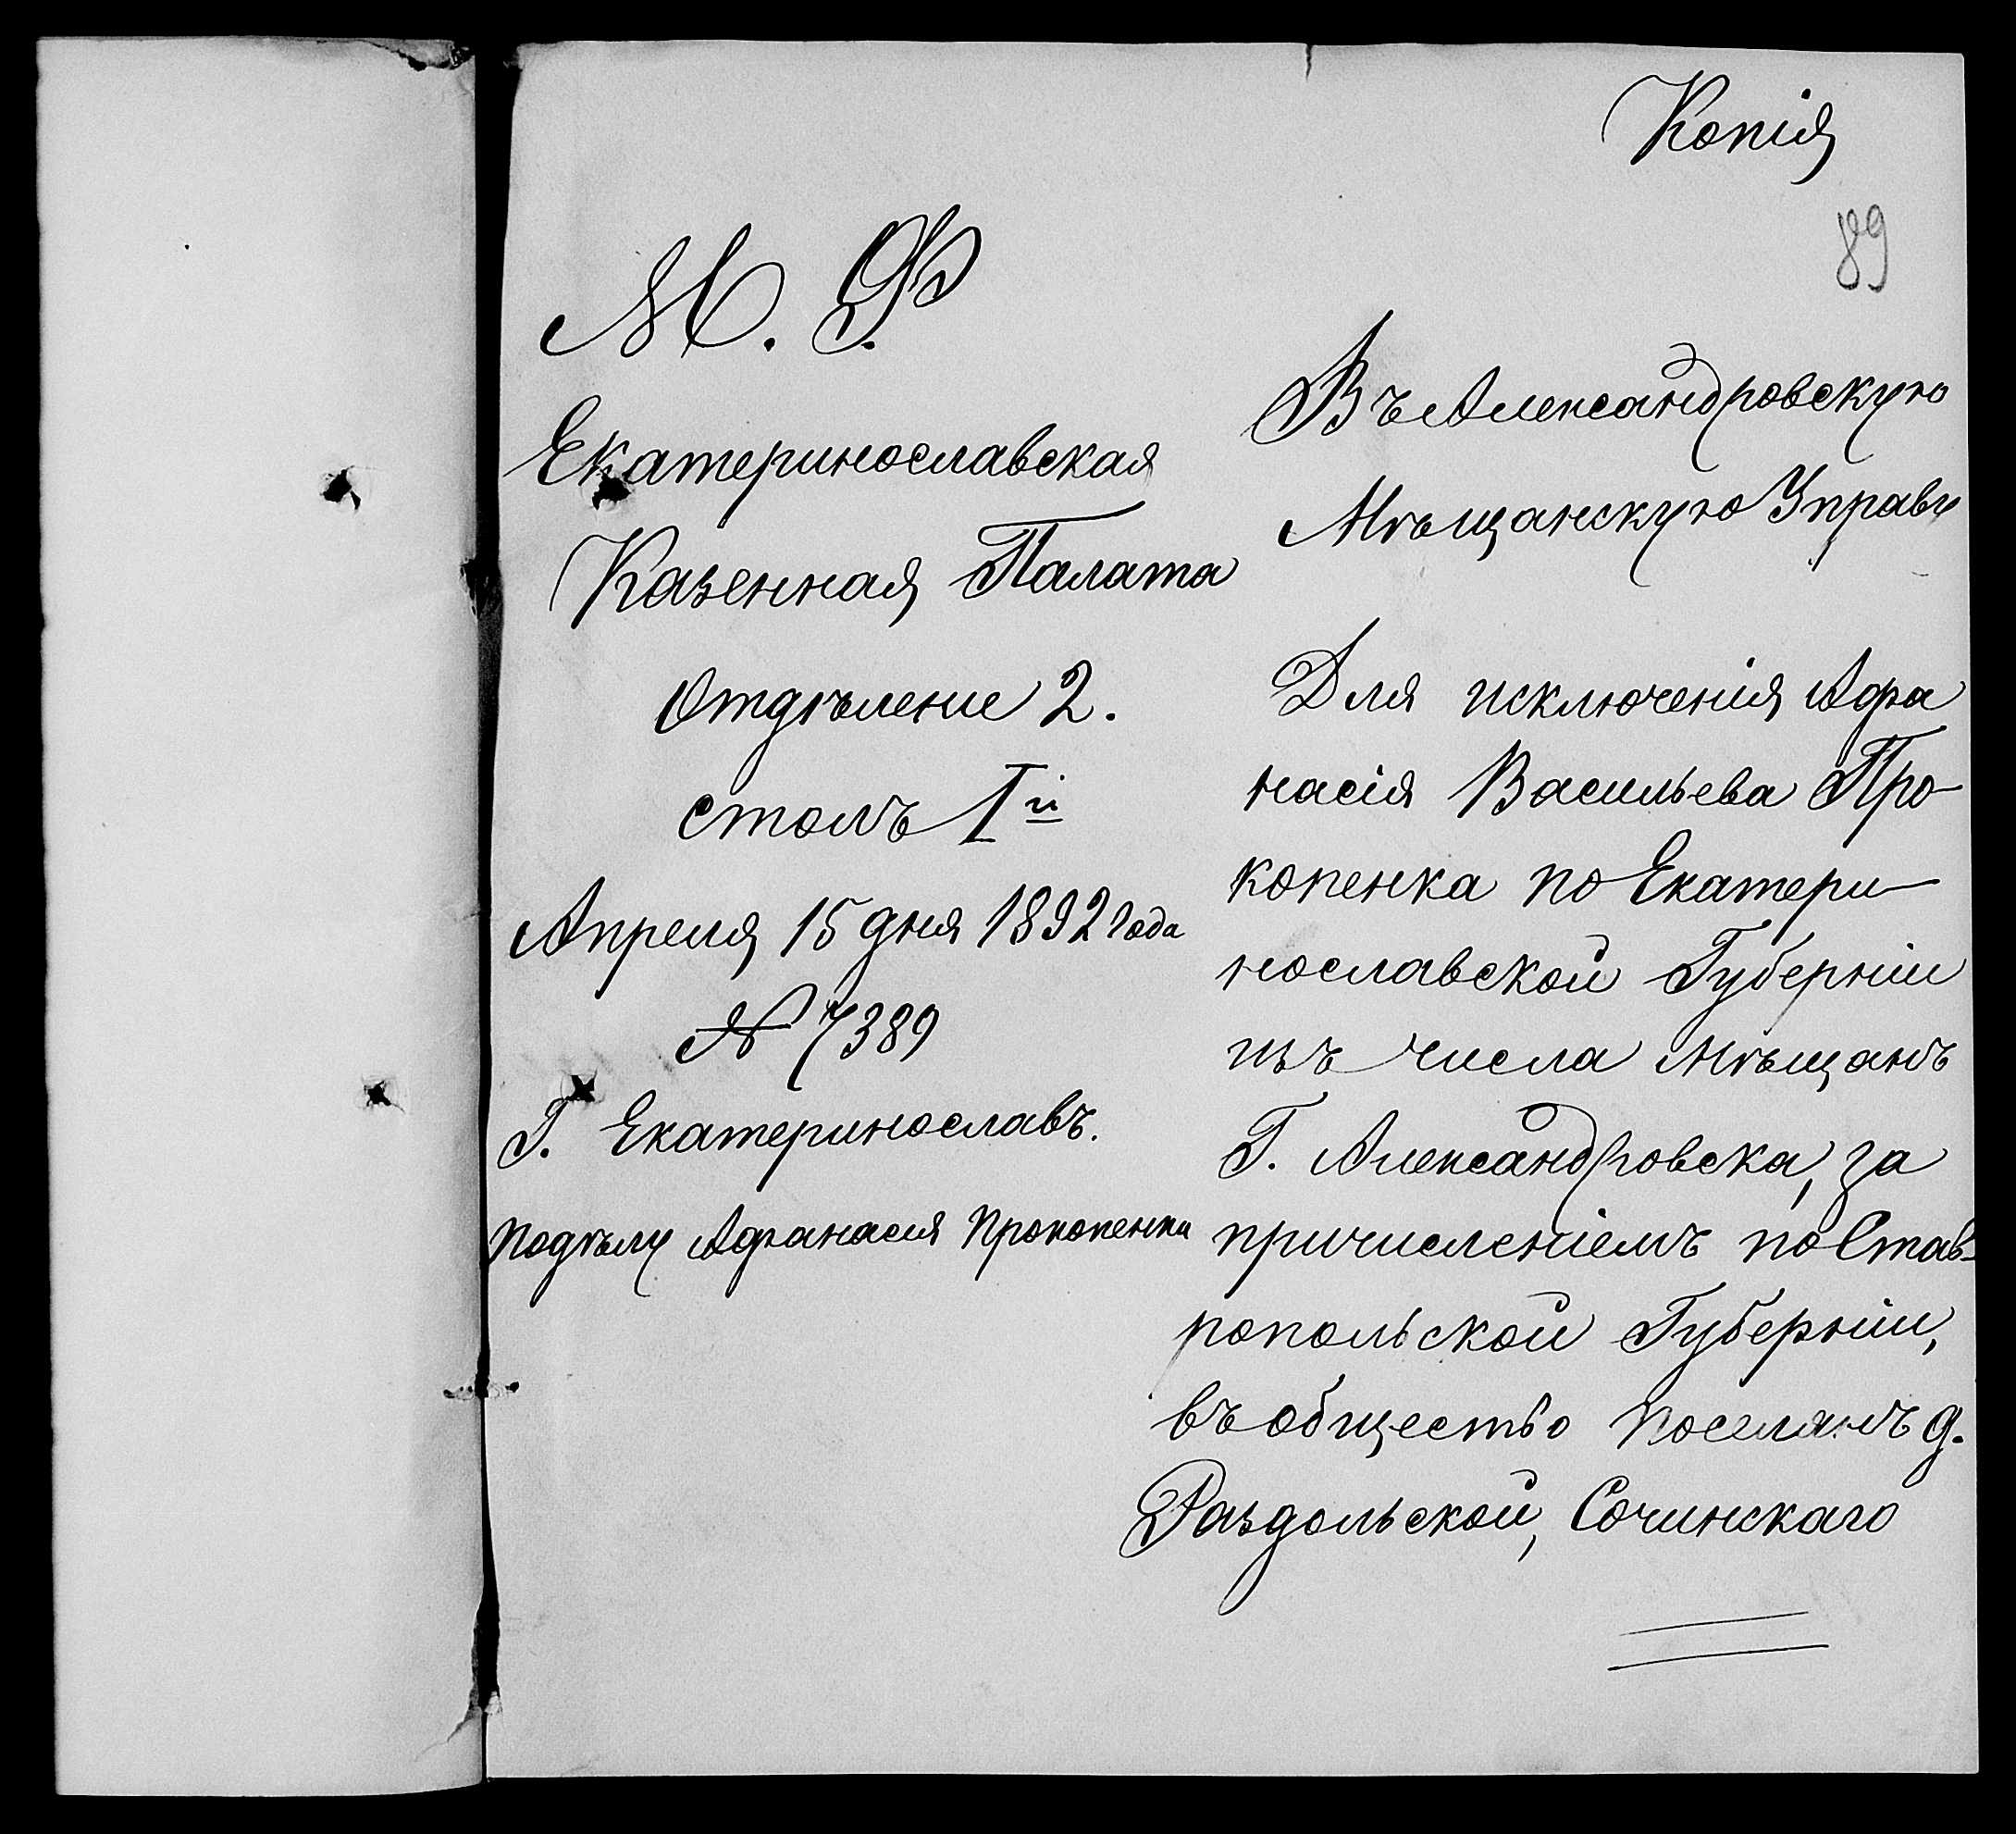 Копія
89
М. Ф.
Екатеринославская
Казенная Палата
Отдѣление 2.
столъ I й
Апреля 15 дня 1892 года
№ 7389
Г. Екатеринославъ.
По дѣлу Афанасия Прокопенка
Въ Александровскую
Мѣщанскую Управу
Для исключенія Афа
насія Васильева Про-
копенка по Екатери-
нославской Губерніи
изъ числа мѣщанъ
Г. Александровска, за
причисленіемъ по Став-
ропольской Губерніи,
въ общество поселянъ д.
Раздольской, Сочинскаго